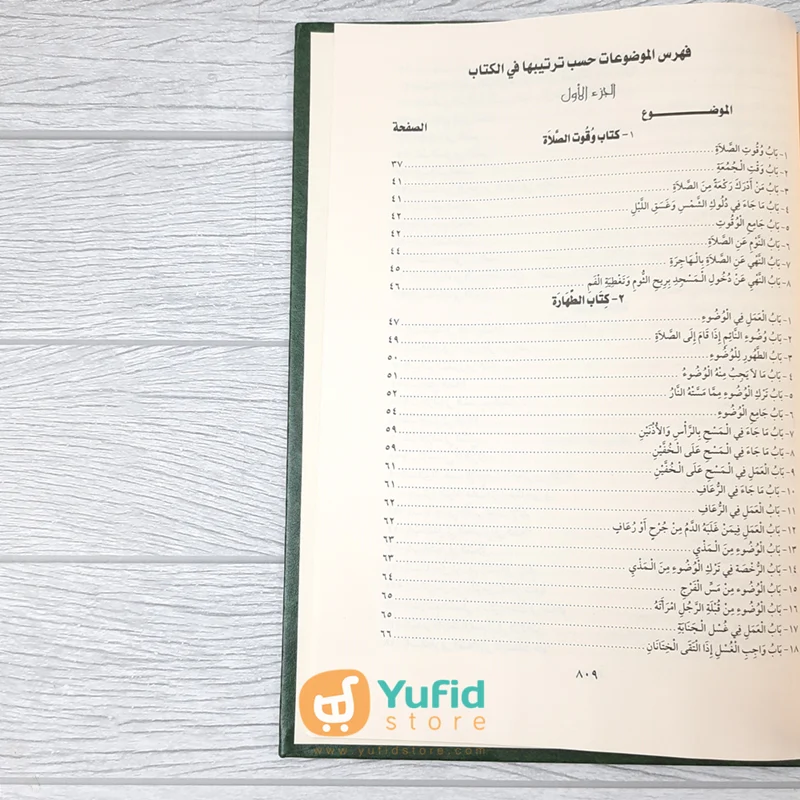 فهرس الموضوعات حسب ترتيبها في الكتاب
الجزء الأول
الموضـــــــــوع الصفحة
١- كتاب وُقُوت الصَّلاَة
١- بَابُ وُقُوتِ الصَّلاَةِ ........ ٣٧
٢- بَابُ وَقْتِ الْجُمُعَةِ ........ ٤١
٣- بَابُ مَنْ أَدْرَكَ رَكْعَةً مِنَ الصَّلاَةِ ........ ٤١
٤- بَابُ مَا جَاءَ فِي دُلُوكِ الشَّمْسِ وَغَسَقِ اللَّيْلِ ........ ٤٢
٥- بَابُ جَامِعِ الْوُقُوتِ ........ ٤٢
٦- بَابُ النَّوْمِ عَنِ الصَّلاَةِ ........ ٤٤
٧- بَابُ النَّهْيِ عَنِ الصَّلاَةِ بِالْـهَاجِرَةِ ........ ٤٥
٨- بَابُ النَّهْيِ عَنْ دُخُولِ الْـمَسْجِدِ بِرِيحِ الثُّومِ وَتَغْطِيَةِ الْفَمِ ........ ٤٦
٢- كِتَاب الطَّهَارَة
١- بَابُ الْعَمَلِ فِي الْوُضُوءِ ........ ٤٧
٢- بَابُ وُضُوءِ النَّائِمِ إِذَا قَامَ إِلَى الصَّلاَةِ ........ ٤٩
٣- بَابُ الطَّهُورِ لِلْوُضُوءِ ........ ٥٠
٤- بَابُ مَا لاَ يَجِبُ مِنْهُ الْوُضُوءُ ........ ٥١
٥- بَابُ تَرْكِ الْوُضُوءِ مِمَّا مَسَّتْهُ النَّارُ ........ ٥٢
٦- بَابُ جَامِعِ الْوُضُوءِ ........ ٥٤
٧- بَابُ مَا جَاءَ فِي الْـمَسْحِ بِالرَّأْسِ وَالأُذُنَيْنِ ........ ٥٩
٨- بَابُ مَا جَاءَ فِي الْـمَسْحِ عَلَى الْخُفَّيْنِ ........ ٥٩
٩- بَابُ الْعَمَلِ فِي الْـمَسْحِ عَلَى الْـخُفَّيْنِ ........ ٦١
١٠- بَابُ مَا جَاءَ فِي الرُّعَافِ ........ ٦١
١١- بَابُ الْعَمَلِ فِي الرُّعَافِ ........ ٦٢
١٢- بَابُ الْعَمَلِ فِيمَنْ غَلَبَهُ الدَّمُ مِنْ جُرْحٍ أَوْ رُعَافٍ ........ ٦٢
١٣- بَابُ الْوُضُوءِ مِنَ الْـمَذْيِ ........ ٦٣
١٤- بَابُ الرُّخْصَةِ فِي تَرْكِ الْوُضُوءِ مِنَ الْـمَذْيِ ........ ٦٣
١٥- بَابُ الْوُضُوءِ مِنْ مَسِّ الْفَرْجِ ........ ٦٤
١٦- بَابُ الْوُضُوءِ مِنْ قُبْلَةِ الرَّجُلِ امْرَأَتَهُ ........ ٦٥
١٧- بَابُ الْعَمَلِ فِي غُسْلِ الْـجَنَابَةِ ........ ٦٥
١٨- بَابُ وَاجِبِ الْغُسْلِ إِذَا الْتَقَى الْخِتَانَانِ ........ ٦٦
٨٠٩
Yufid
store
www.yufidstore.com